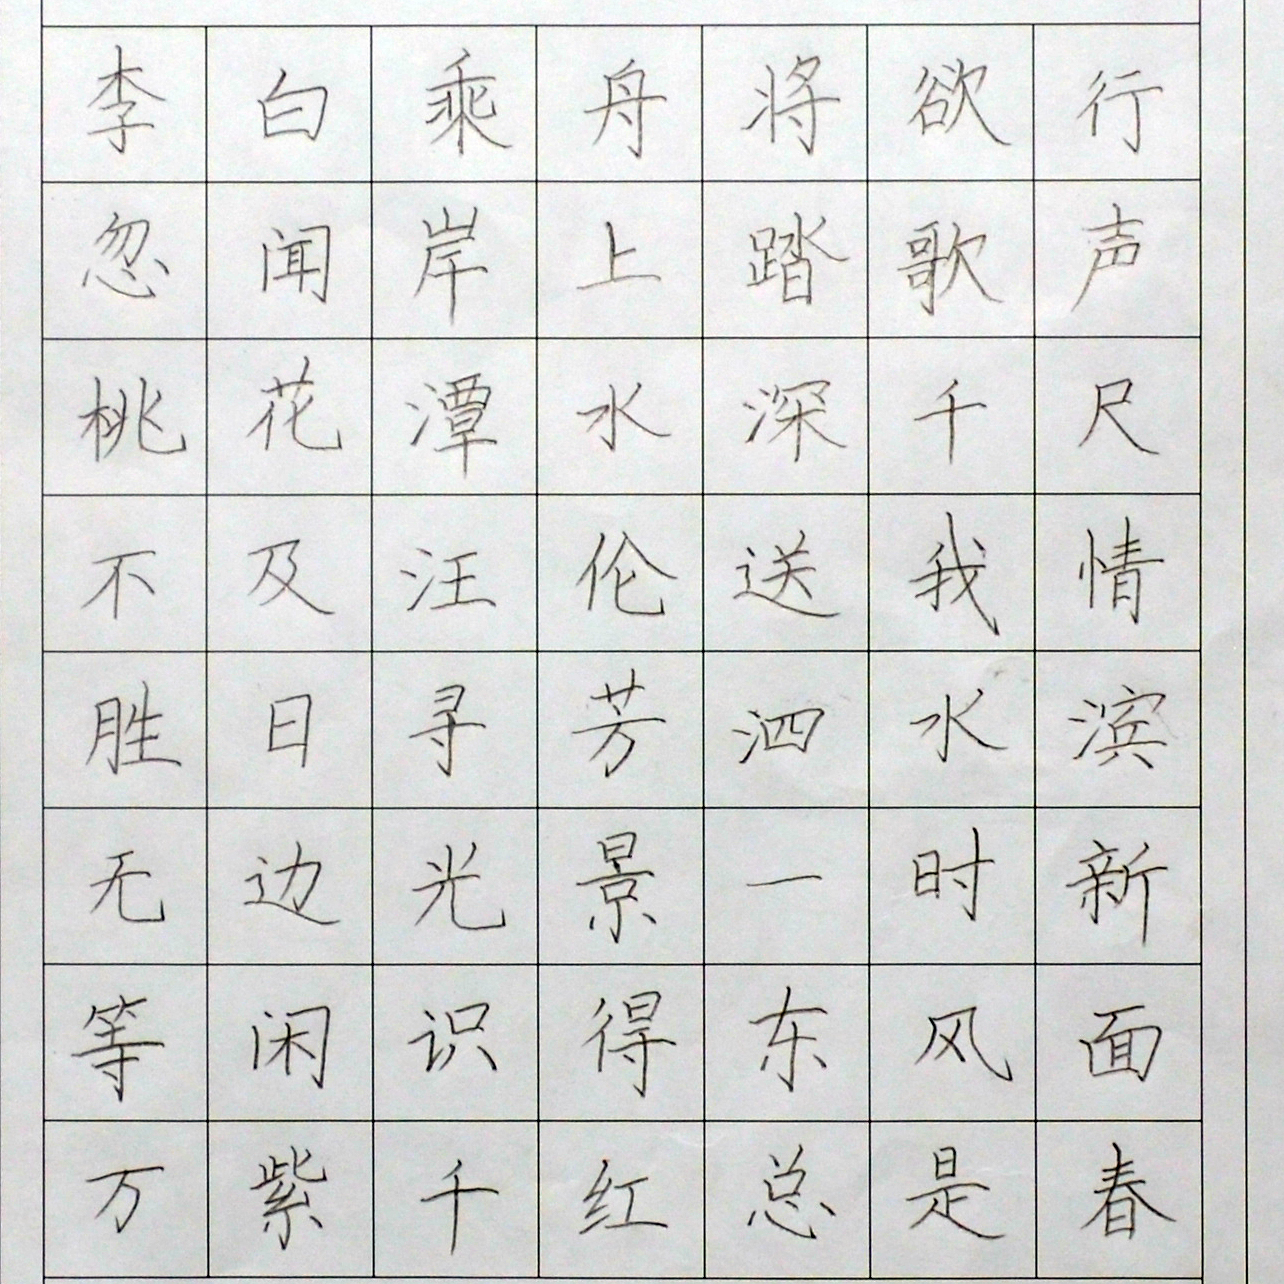 李白乘舟将欲行
忽闻岸上踏歌声
桃花潭水深千尺
不及汪伦送我情
胜日寻芳泗水滨
无边光景一时新
等闲识得东风面
万紫千红总是春